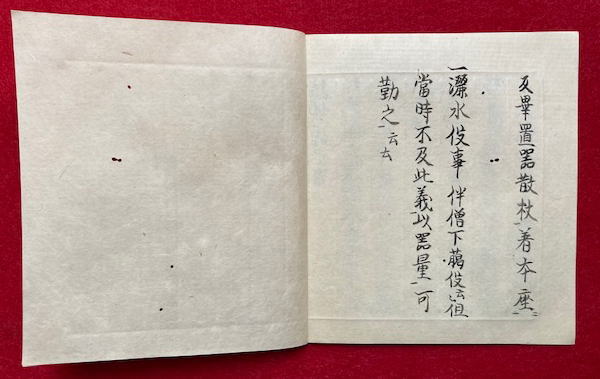 又畢置器散杖着本座
一灑水役事 伴僧下﨟役云但
當時不及此義以器量可
勤之云々